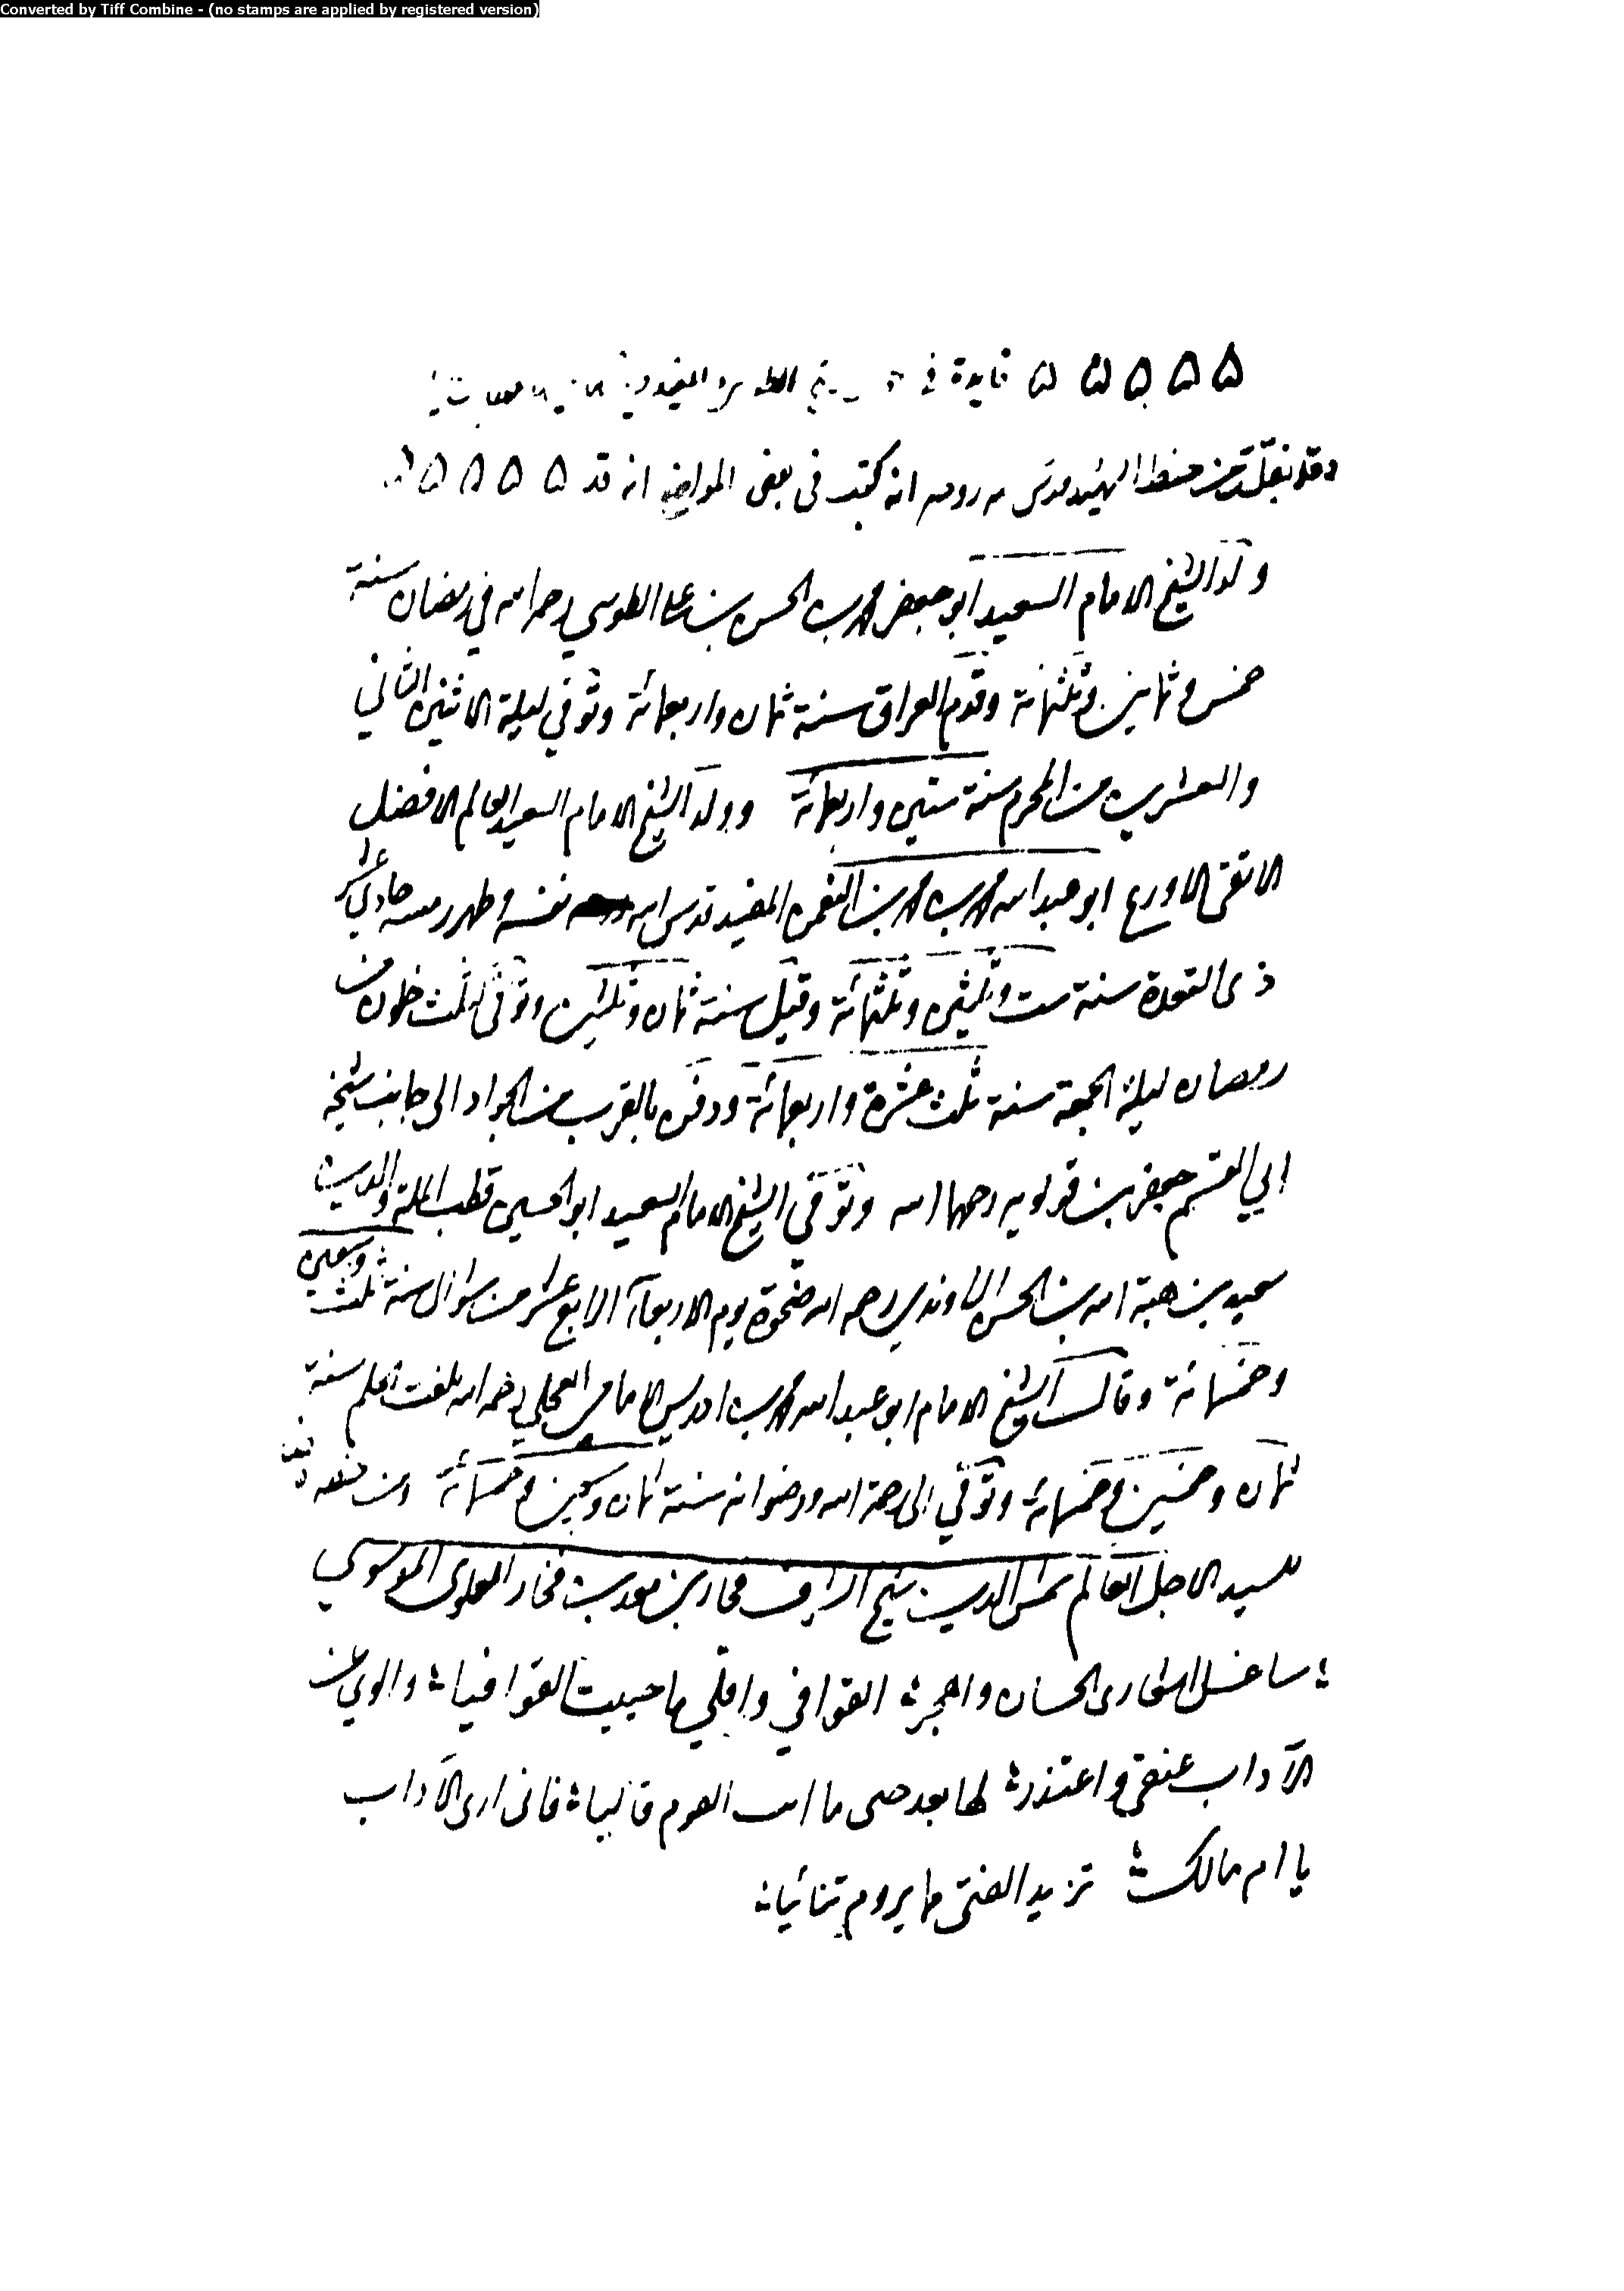 Converted by Tiff Combine - (no stamps are applied by registered version)
۵ ۵ ۵ ۵ ۵ فايدة في
وقد نقلت من خط الشهيد قدس سره روحه انه كتب في بعض المواضع انه قد ۵ ۵ ۵ ۵
ولد الشيخ الامام السعيد ابو جعفر محمد بن الحسن بن علي الطوسي رحمه الله في رمضان سنة
خمس وثمانين وثلثمائة وقدم العراق سنة ثمان واربعمائة وتوفي ليلة الاثنين الثاني
والعشرين من المحرم سنة ستين واربعمائة وولد الشيخ الامام السعيد العالم الافضل
الاتقى الاورع ابو عبد الله محمد بن محمد بن النعمن المفيد قدس الله نفسه وطهر رمسه حادي عشر
ذي القعدة سنة ست وثلثين وثلثمائة وقيل سنة ثمان وثلثين وتوفى لثلث خلون من
رمضان ليلة الجمعة سنة ثلث عشرة واربعمائة ودفن بالقرب من الجواد الى جانب شيخه
ابي القسم جعفر بن قولويه رحمهما الله وتوفي الشيخ الامام السعيد ابو الحسين قطب الملة والدين
سعيد بن هبة الله بن الحسن الراوندي رحمه الله ضحوة يوم الاربعاء الرابع عشر من شوال سنة ثلث وسبعين
وخمسمائة وقال الشيخ الامام ابو عبد الله محمد بن ادريس الامامي العجلي رحمه الله بلغت الحلم سنة
ثمان وخمسين وخمسمائة وتوفي الى رحمة الله ورضوانه سنة ثمان وسبعين وخمسمائة ومن خطه
للسيد الاجل العالم شمس الدين شيخ الشرف فخار بن معد بن فخار العلوى الموسوي
ساغسل اشعارى الحسان واهجر القوافي واقلي ما حييت القوافيا والوي عن
الآداب عنقي واعتذر لها بعد حتى ما ارى القوم قاليا فاني ارى الآداب
يا ام مالك تزيد الفتى مما يروم تنائيا